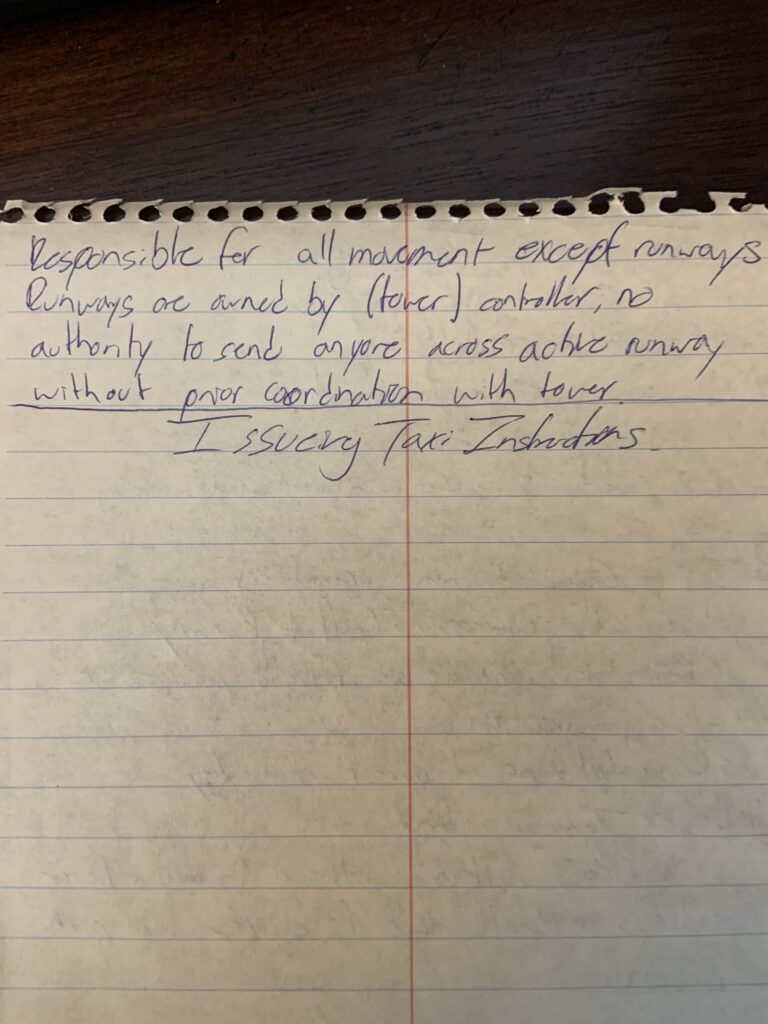 Responsible for all movement except runways
Runways are owned by (tower) controller, no
authority to send anyone across active runway
without prior coordination with tower.
Issueing Taxi Instructions.